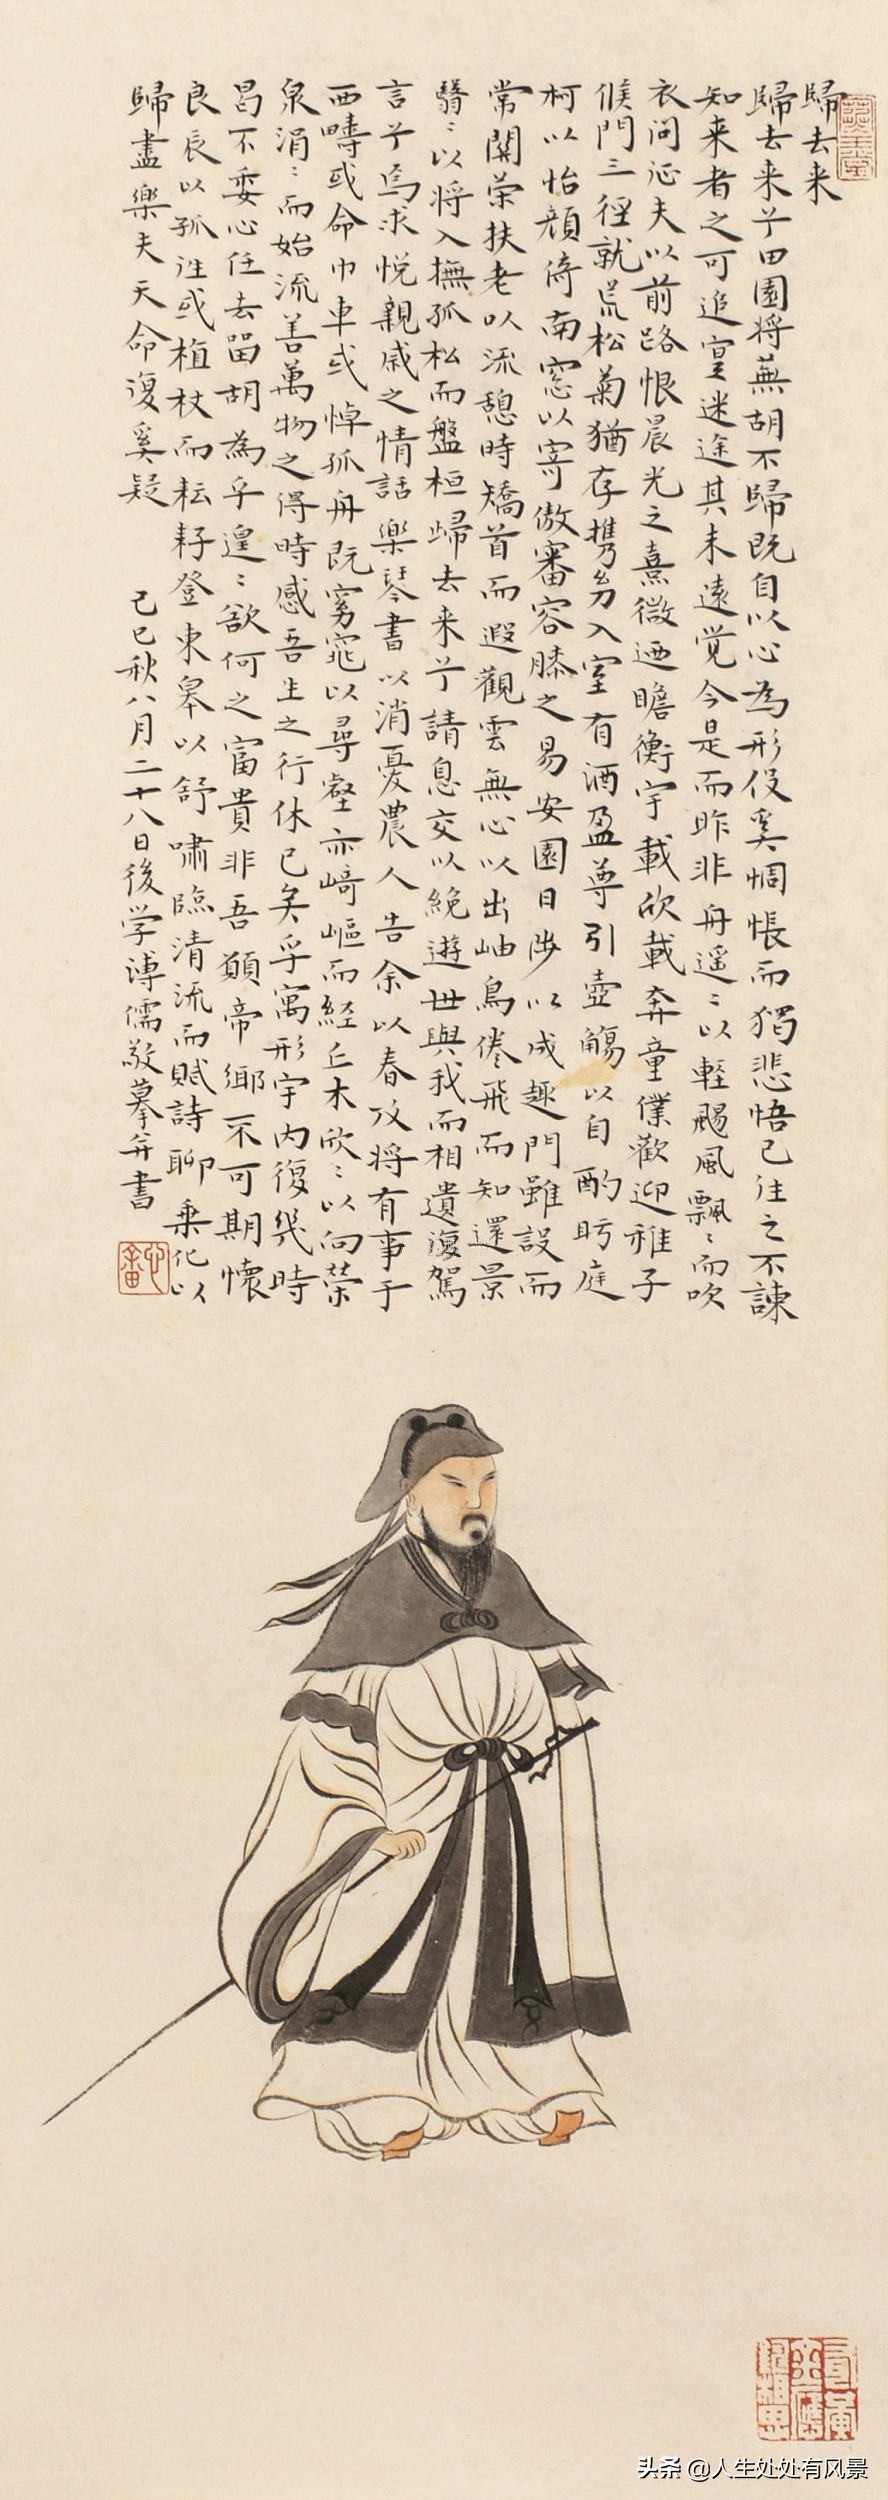 歸去来
歸去来兮田園将蕪胡不歸既自以心為形役奚惆悵而獨悲悟已往之不諫
知来者之可追寔迷途其未遠覚今是而昨非舟遥〻以軽颺風飄〻而吹
衣问征夫以前路恨晨光之熹微迺瞻衡宇載欣載奔童僕歡迎稚子
候門三徑就荒松菊猶存携幼入室有酒盈尊引壺觴以自酌眄庭
柯以怡顔倚南窓以寄傲審容膝之易安園日涉以成趣門雖設而
常關策扶老以流憩時矯首而遐觀雲無心以出岫鳥倦飛而知還景
翳〻以将入撫孤松而盤桓歸去来兮請息交以絶遊世與我而相遺復駕
言兮焉求悦親戚之情話樂琴書以消憂農人告余以春及将有事于
西疇或命巾車或棹孤舟既窈窕以尋壑亦崎嶇而経丘木欣〻以向荣
泉涓〻而始流善萬物之得時感吾生之行休已矣乎寓形宇内復幾時
曷不委心任去留胡為乎遑〻欲何之富貴非吾願帝鄉不可期懷
良辰以孤往或植杖而耘耔登東皋以舒嘯臨清流而賦詩聊乗化以
歸盡樂夫天命復奚疑
己巳秋八月二十八日後学溥儒敬摹并書
心畬
头条 @人生处处有风景